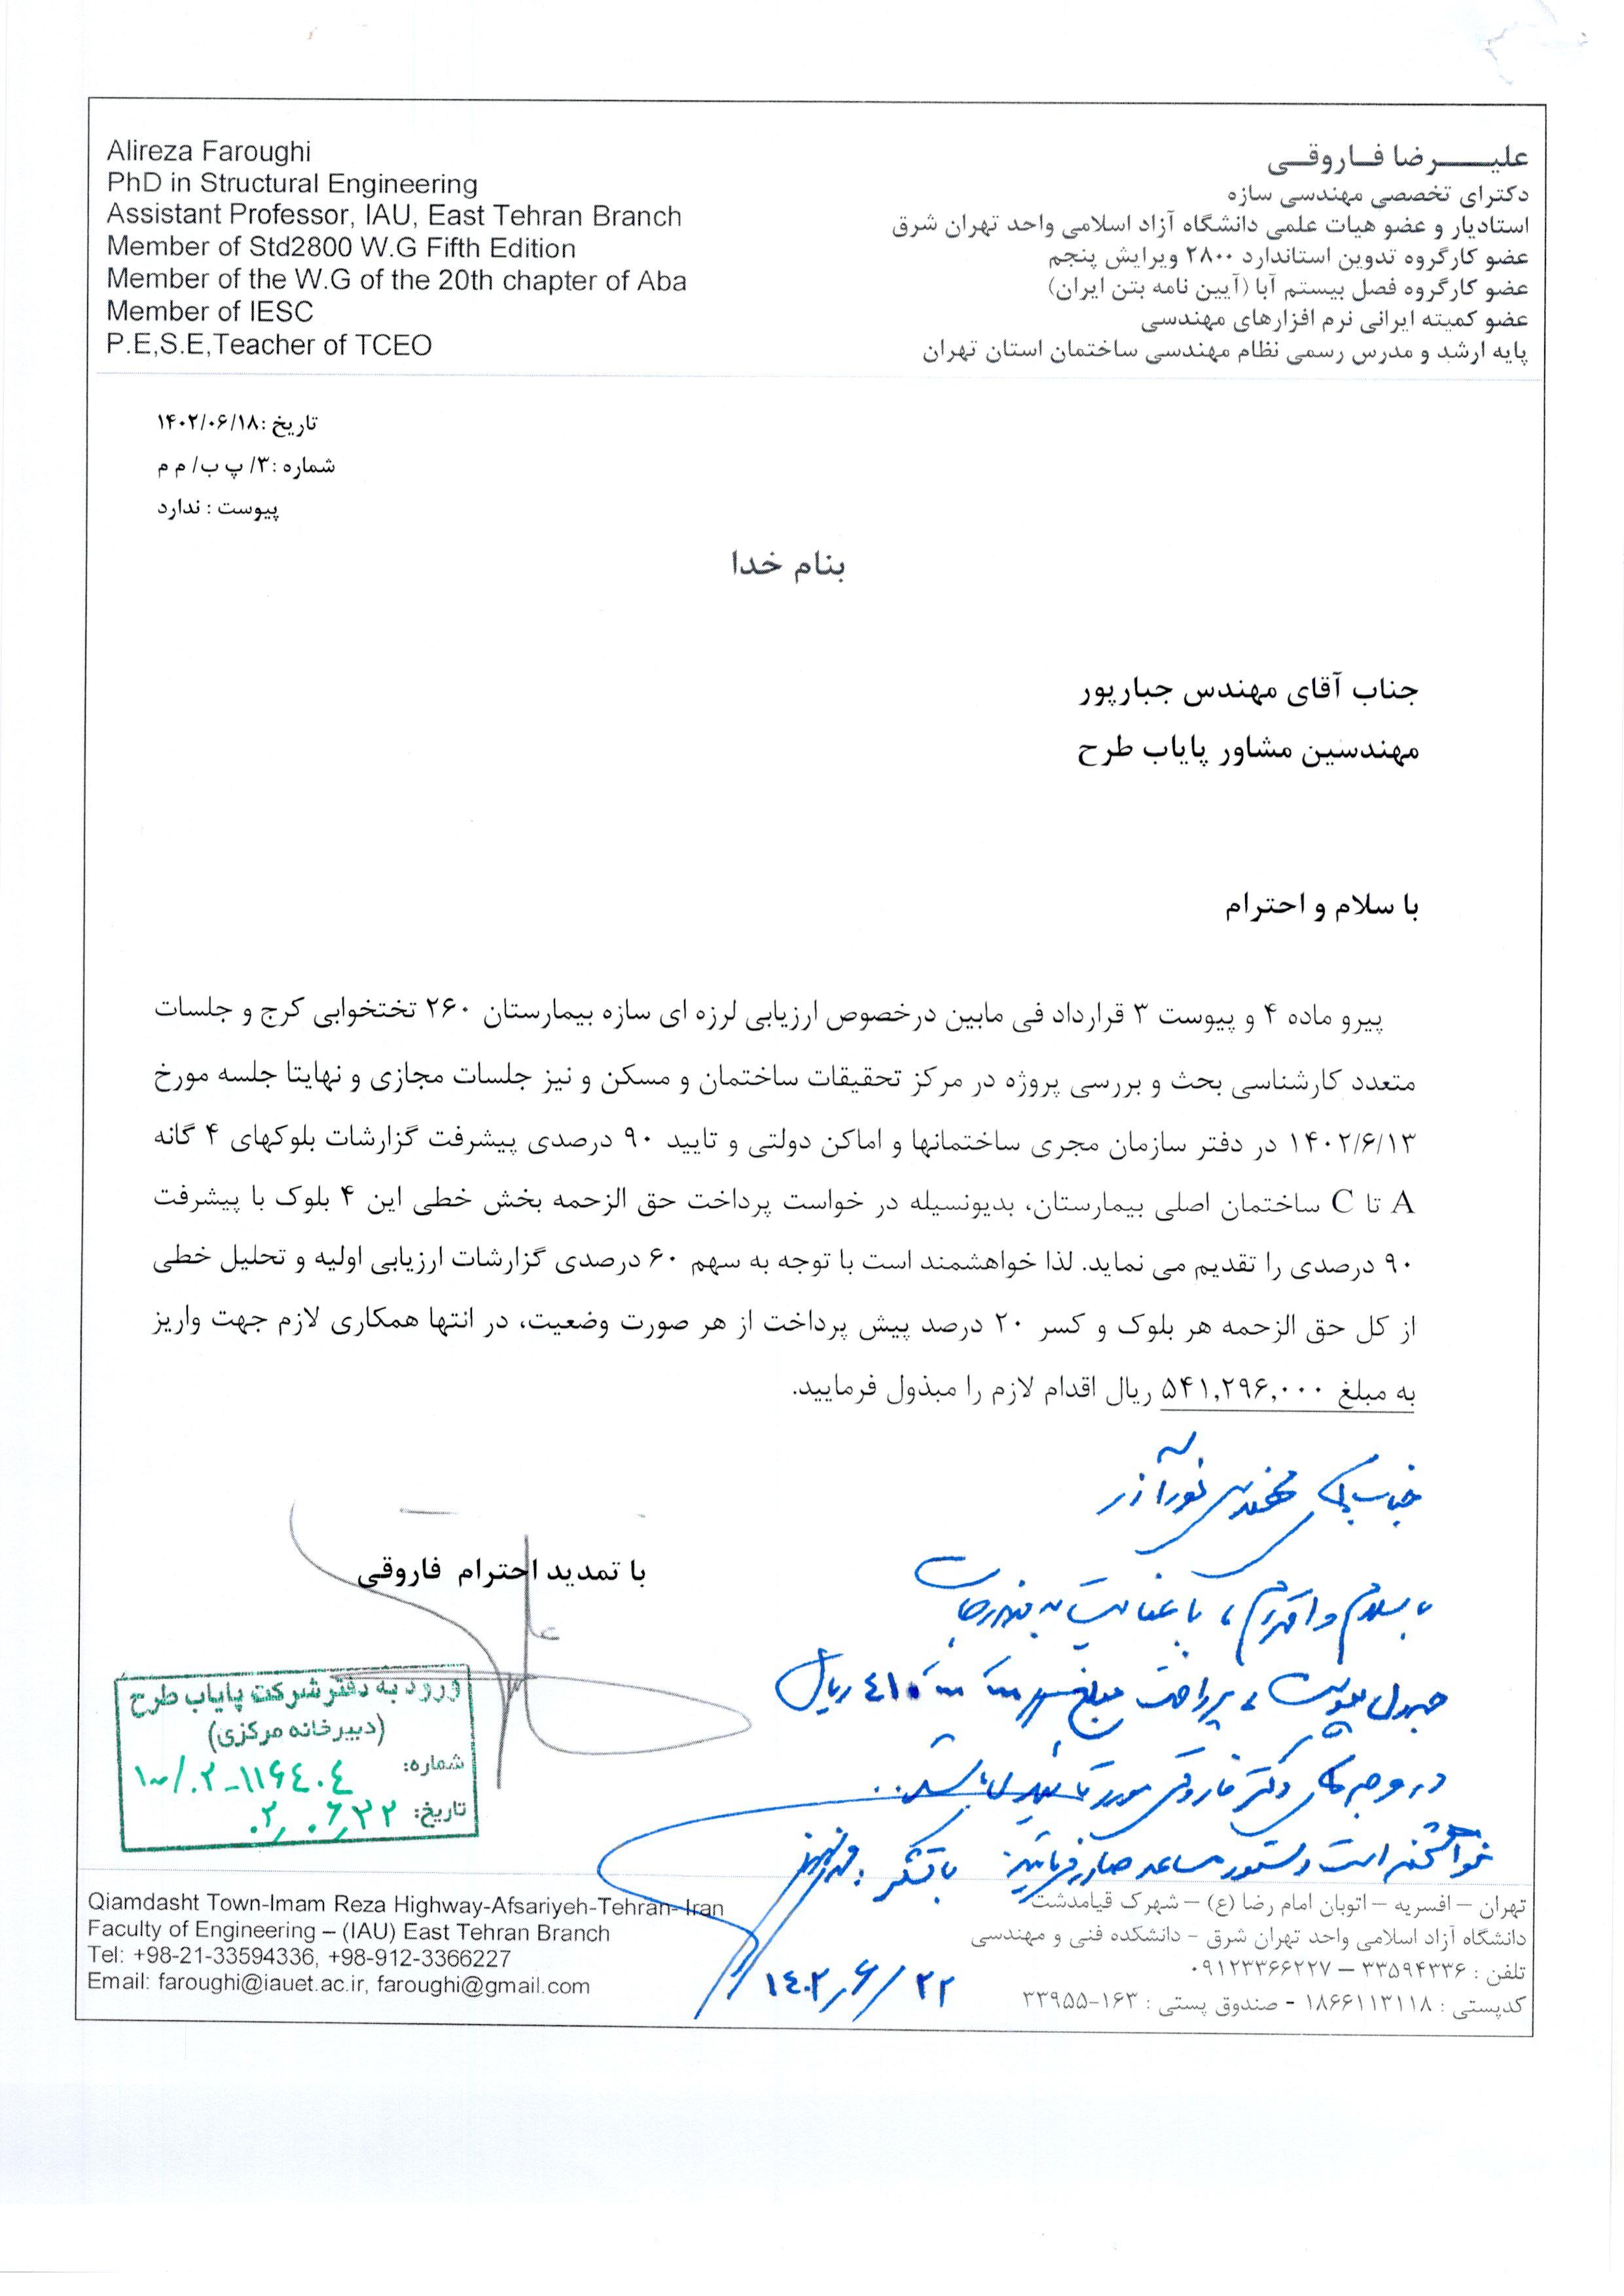 Alireza Faroughi
PhD in Structural Engineering
Assistant Professor, IAU, East Tehran Branch
Member of Std2800 W.G Fifth Edition
Member of the W.G of the 20th chapter of Aba
Member of IESC
P.E,S.E,Teacher of TCEO
علیـــــرضا فـاروقـی
دکترای تخصصی مهندسی سازه
استادیار و عضو هیات علمی دانشگاه آزاد اسلامی واحد تهران شرق
عضو کارگروه تدوین استاندارد ۲۸۰۰ ویرایش پنجم
عضو کارگروه فصل بیستم آبا (آیین نامه بتن ایران)
عضو کمیته ایرانی نرم افزارهای مهندسی
پایه ارشد و مدرس رسمی نظام مهندسی ساختمان استان تهران
تاریخ :۱۴۰۲/۰۶/۱۸
شماره :۳/ پ ب/ م م
پیوست : ندارد
بنام خدا
جناب آقای مهندس جبارپور
مهندسین مشاور پایاب طرح
با سلام و احترام
پیرو ماده ۴ و پیوست ۳ قرارداد فی مابین درخصوص ارزیابی لرزه ای سازه بیمارستان ۲۶۰ تختخوابی کرج و جلسات
متعدد کارشناسی بحث و بررسی پروژه در مرکز تحقیقات ساختمان و مسکن و نیز جلسات مجازی و نهایتا جلسه مورخ
۱۴۰۲/۶/۱۳ در دفتر سازمان مجری ساختمانها و اماکن دولتی و تایید ۹۰ درصدی پیشرفت گزارشات بلوکهای ۴ گانه
A تا C ساختمان اصلی بیمارستان، بدیونسیله در خواست پرداخت حق الزحمه بخش خطی این ۴ بلوک با پیشرفت
۹۰ درصدی را تقدیم می نماید. لذا خواهشمند است با توجه به سهم ۶۰ درصدی گزارشات ارزیابی اولیه و تحلیل خطی
از کل حق الزحمه هر بلوک و کسر ۲۰ درصد پیش پرداخت از هر صورت وضعیت، در انتها همکاری لازم جهت واریز
به مبلغ ۵۴۱,۲۹۶,۰۰۰ ریال اقدام لازم را مبذول فرمایید.
جناب آقای مهندس نورآذر
با سلام و احترام، با عنایت به مندرجات
جدول پیوست، پرداخت مبلغ ریال
در وجه آقای دکتر فاروقی مورد تایید می باشد..
خواهشمند است دستور مساعد صادر فرمایید. با تشکر
۱۴۰۲/۶/۲۲
با تمدید احترام فاروقی
ورود به دفتر شرکت پایاب طرح
(دبیرخانه مرکزی)
شماره: ۱۰۰/۰۲-۱۱۶۴۰۴
تاریخ: ۰۲/۰۶/۲۲
Qiamdasht Town-Imam Reza Highway-Afsariyeh-Tehran-Iran
Faculty of Engineering – (IAU) East Tehran Branch
Tel: +98-21-33594336, +98-912-3366227
Email: faroughi@iauet.ac.ir, faroughi@gmail.com
تهران – افسریه – اتوبان امام رضا (ع) – شهرک قیامدشت
دانشگاه آزاد اسلامی واحد تهران شرق - دانشکده فنی و مهندسی
تلفن : ۳۳۵۹۴۳۳۶ – ۰۹۱۲۳۳۶۶۲۲۷
کدپستی : ۱۸۶۶۱۱۳۱۱۸ - صندوق پستی : ۱۶۳-۳۳۹۵۵